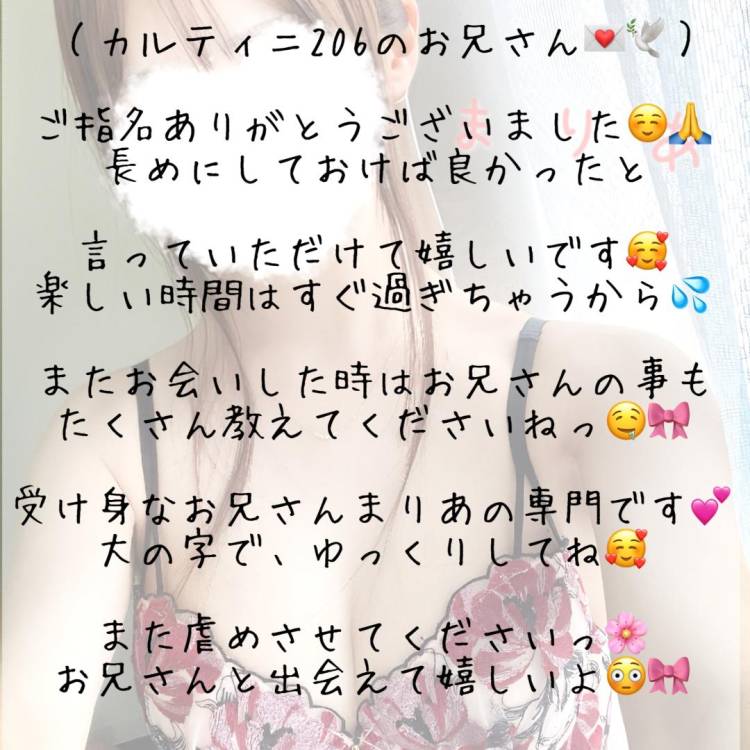 ( カルティニ206のお兄さん💌🕊️ )
ご指名ありがとうございました☺️🙏
まりあ
長めにしておけば良かったと
言っていただけて嬉しいです🥰
楽しい時間はすぐ過ぎちゃうから💦
またお会いした時はお兄さんの事も
たくさん教えてくださいねっ🤤🎀
受け身なお兄さんまりあの専門です💕
大の字で、ゆっくりしてね🥰
また虐めさせてくださいっ🌸
お兄さんと出会えて嬉しいよ😳🎀